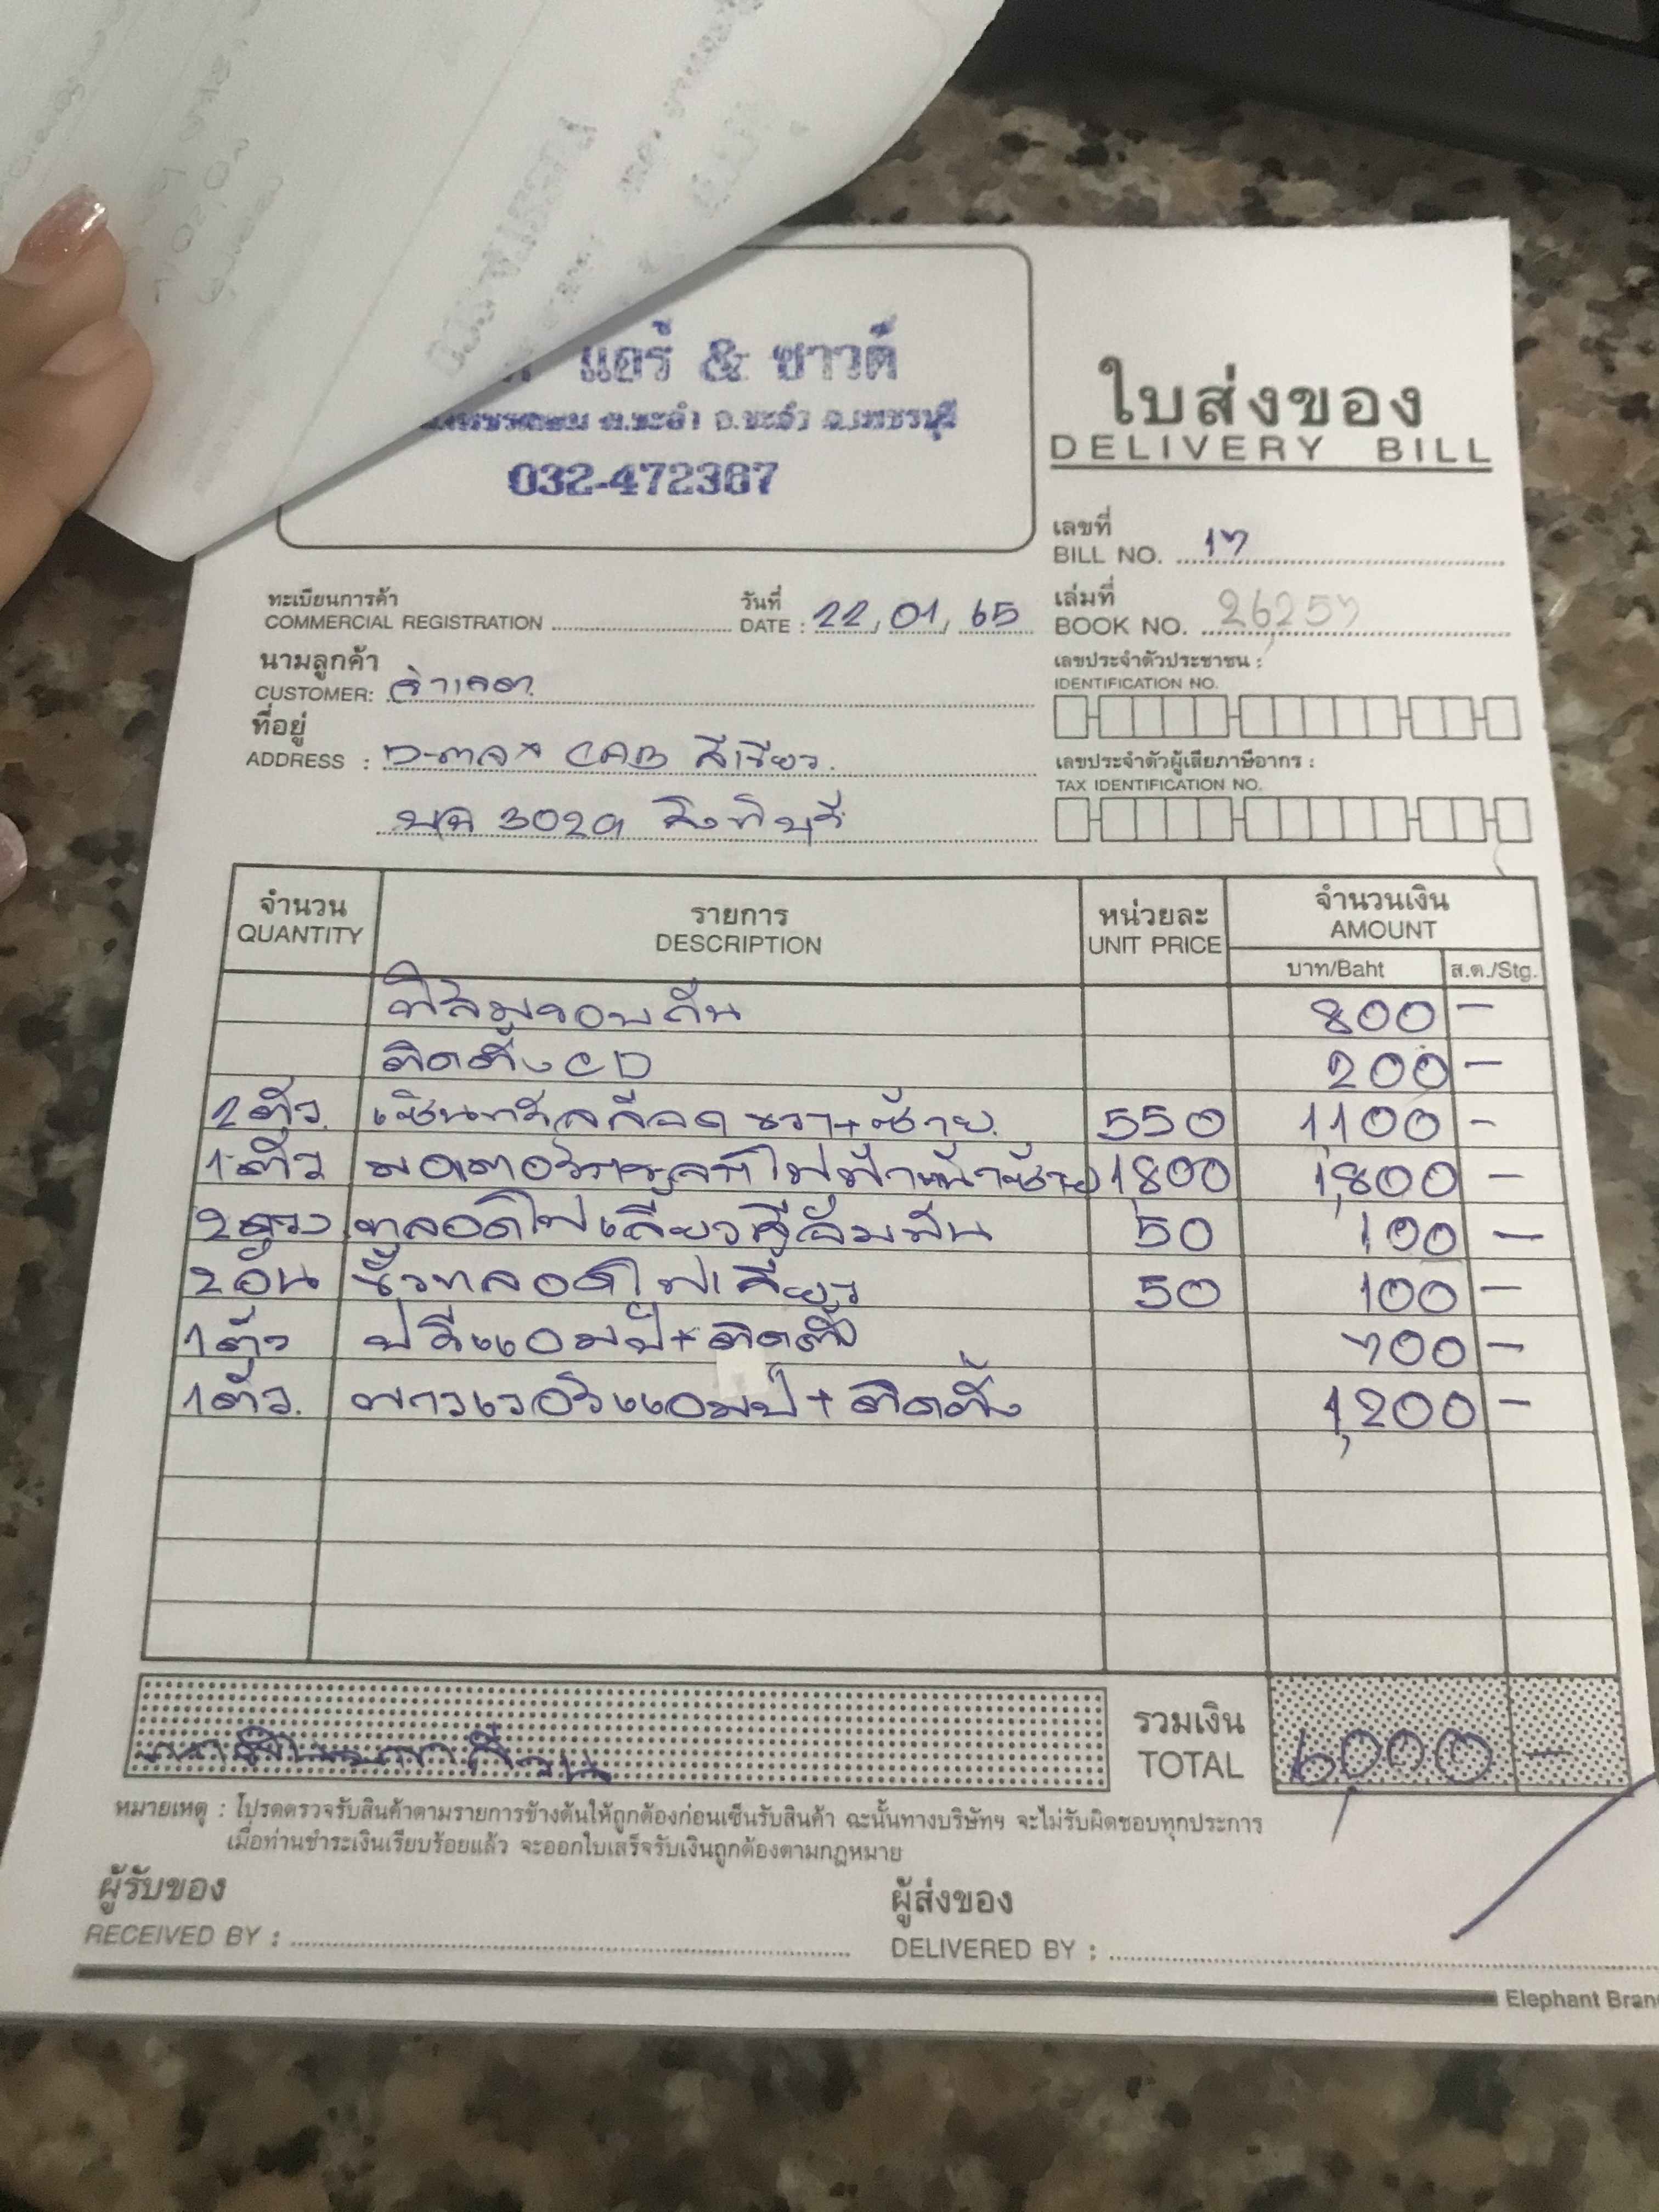 แอร์ & ซาวด์
ต.ชะอำ อ.ชะอำ จ.เพชรบุรี
032-472367
ใบส่งของ
DELIVERY BILL
เลขที่
BILL NO. 17
ทะเบียนการค้า
COMMERCIAL REGISTRATION
วันที่
DATE : 22, 01, 65
เล่มที่
BOOK NO. 26257
นามลูกค้า
CUSTOMER:
เลขประจำตัวประชาชน :
IDENTIFICATION NO.
ที่อยู่
ADDRESS : D-max CAB สีเขียว
เลขประจำตัวผู้เสียภาษีอากร :
TAX IDENTIFICATION NO.
3029 สิงห์บุรี
จำนวน รายการ หน่วยละ จำนวนเงิน
QUANTITY DESCRIPTION UNIT PRICE AMOUNT
บาท/Baht ส.ต./Stg.
ฟิล์มรอบคัน 800 -
ติดตั้ง CD 200 -
2ตัว เซ็นทรัลล็อค ขวา+ซ้าย 550 1100 -
1ตัว มอเตอร์ไฟฟ้าหน้าซ้าย 1800 1,800 -
50 100 -
2อัน ขั้วหลอดไฟเลี้ยว 50 100 -
1ตัว ปรีแอมป์+ติดตั้ง 700 -
1ตัว. พาวเวอร์แอมป์+ติดตั้ง 1,200 -
รวมเงิน
TOTAL 6,000 -
หมายเหตุ : โปรดตรวจรับสินค้าตามรายการข้างต้นให้ถูกต้องก่อนเซ็นรับสินค้า ฉะนั้นทางบริษัทฯ จะไม่รับผิดชอบทุกประการ
เมื่อท่านชำระเงินเรียบร้อยแล้ว จะออกใบเสร็จรับเงินถูกต้องตามกฎหมาย
ผู้รับของ
RECEIVED BY :
ผู้ส่งของ
DELIVERED BY :
Elephant Bran